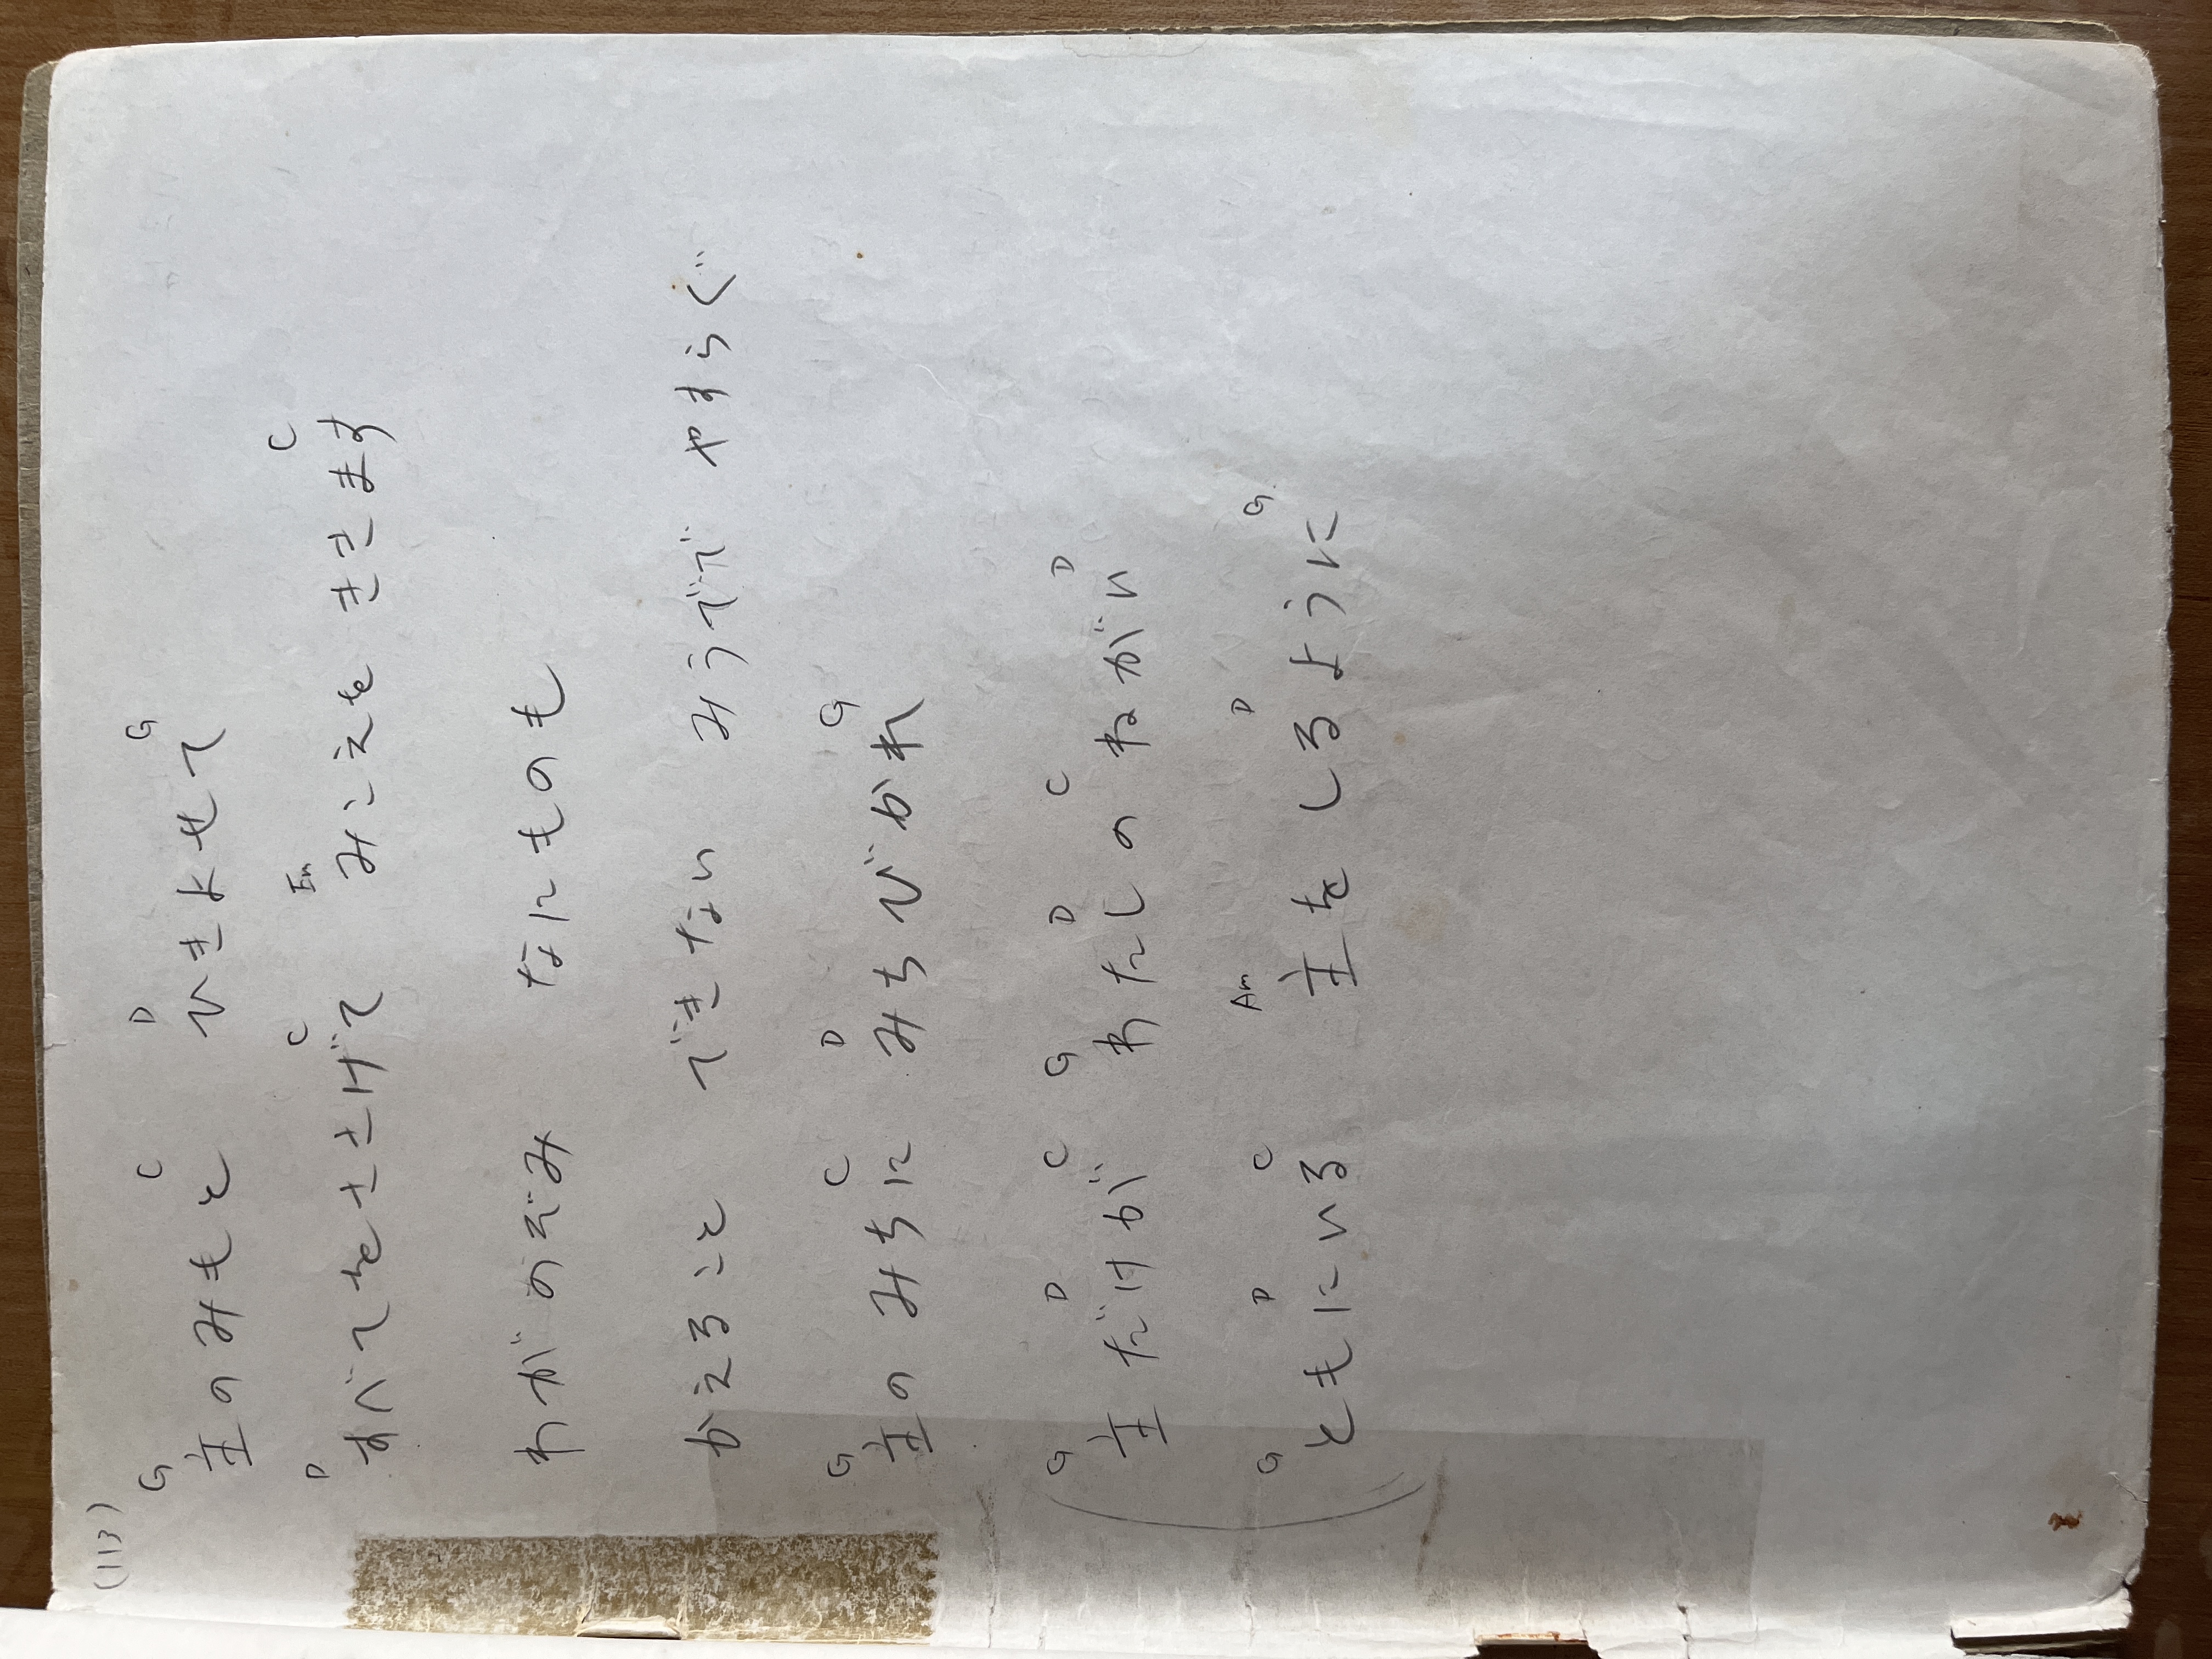 (113)
G C D G
主のみもと ひきよせて
D C Em C
すべてをささげて みこえをききます
わがのぞみ なにものも
かえること できない みうでで やすらぐ
G C D G
主のみちに みちびかれ
G D C G D C D
主だけが わたしの ねがい
G D C Am D G
ともにいる 主をしるように